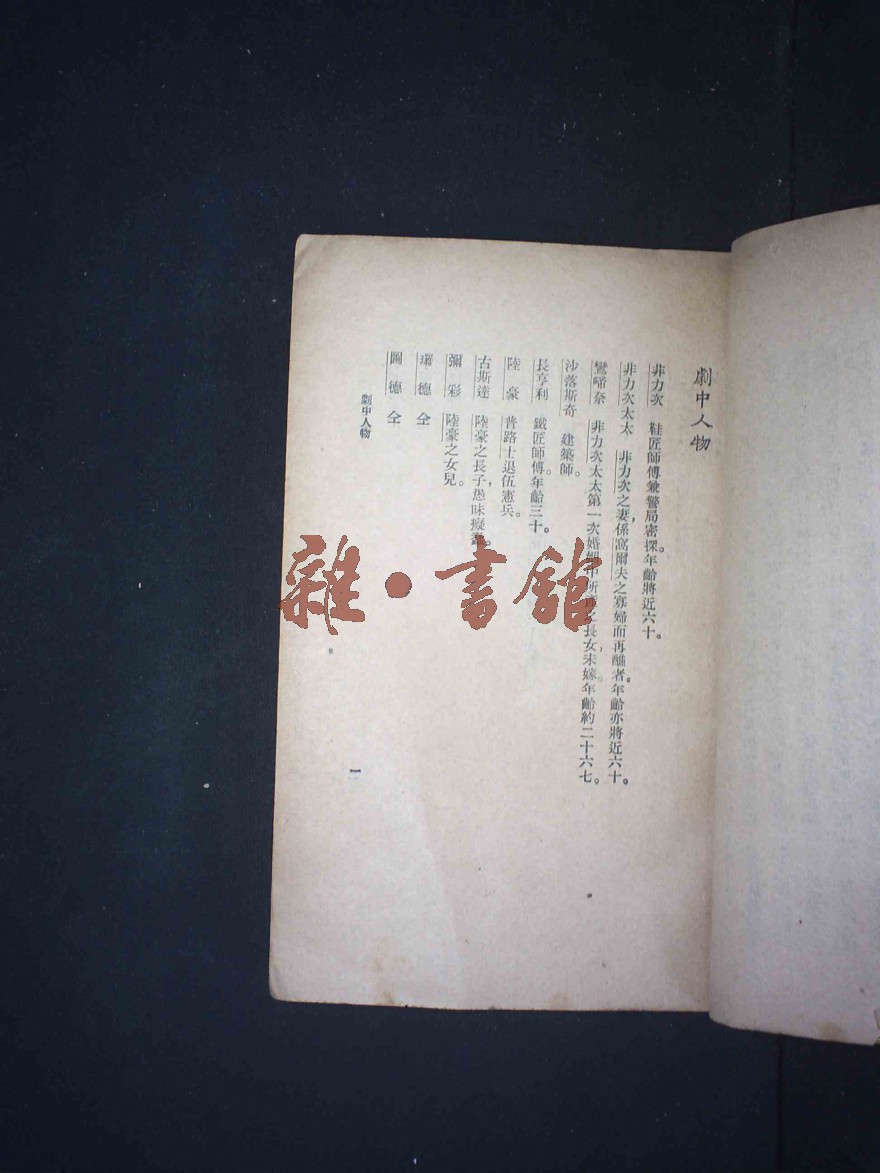 劇中人物
非力次　鞋匠師傅兼警局密探。年齡將近六十。
非力次太太　非力次之妻，係窩爾夫之寡婦而再醮者。年齡亦將近六十。
鸞啼奈　非力次太太第一次婚姻中所之長女，未嫁。年齡約二十六七。
沙落斯奇　建築師。
長亨利　鐵匠師傅。年齡三十。
陸豪　普路士退伍憲兵。
古斯達　陸豪之長子，愚昧癡蠢。
彌彩　陸豪之女兒。
璢德　仝
圖德　仝
劇中人物
一
雜·書館